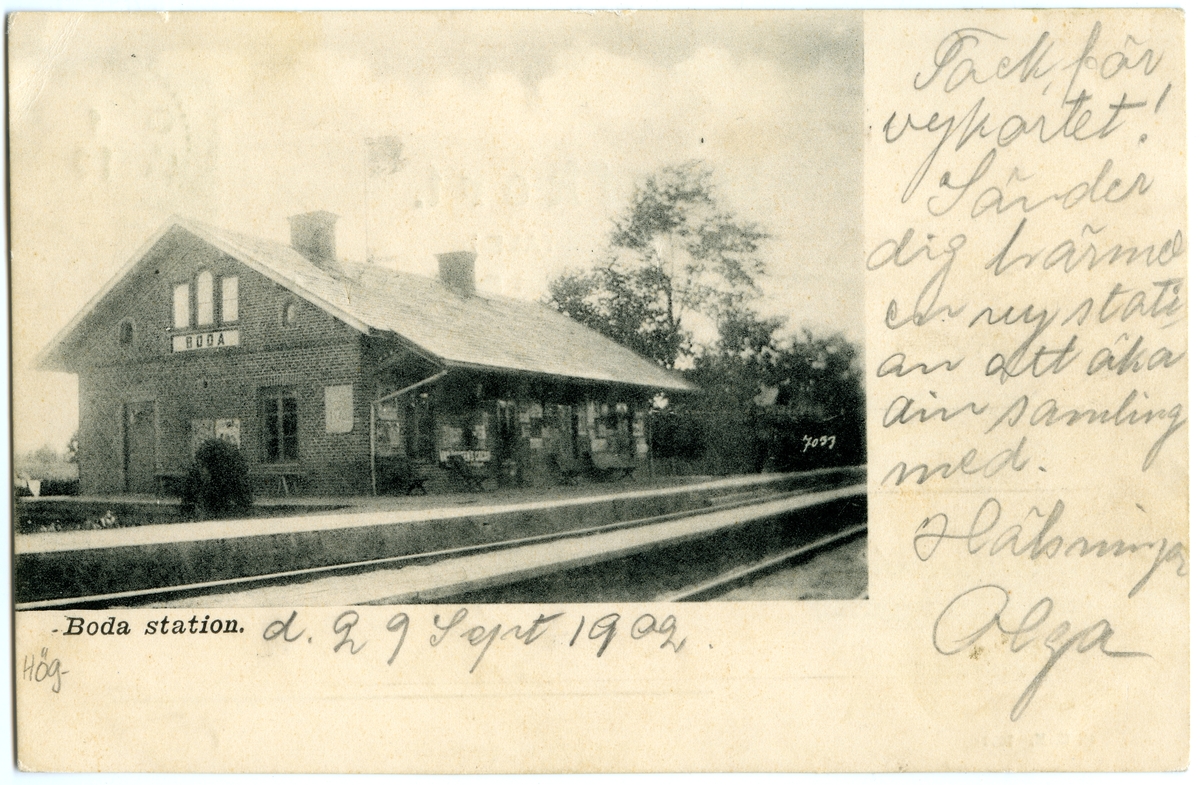 Tack för
vykortet!
Sänder
dig härmed
en ny stati
on att öka
din samling
med.
Hälsninga
Olga
BODA
7033
-Boda station. d. 29 Sept 1902.
Hög-